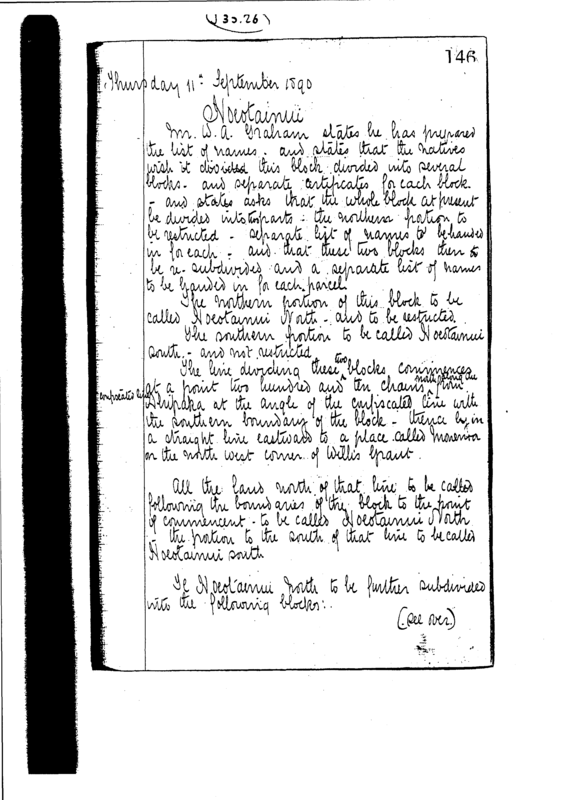 (35.26)
146
Thursday 11th September 1890
Hoeotainui
Mr. W. A. Graham states he has prepared
the list of names - and states that the natives
wish it divided this block divided into several
blocks - and separate certificates for each block.
- and states asks that the whole block at present
be divided into parts - the northern portion to
be restricted - separate list of names to be handed
in for each - and that these two blocks then to
be re-subdivided and a separate list of names
to be handed in for each parcel.
The northern portion of this block to be
called Hoeotainui North - and to be restricted.
The southern portion to be called Hoeotainui
south - and not restricted
The line dividing these two blocks commences
at a point two hundred and ten chains from
confiscated line
at the angle of the confiscated line with
the southern boundary of the block - thence by in
a straight line eastward to a place called
on the north west corner of Willis Grant.
All the land north of that line to be called
following the boundaries of the block to the point
of commencent - to be called Hoeotainui North
- the portion to the south of that line to be called
Hoeotainui south
Te Hoeotainui North to be further subdivided
into the following blocks:.
(see over)